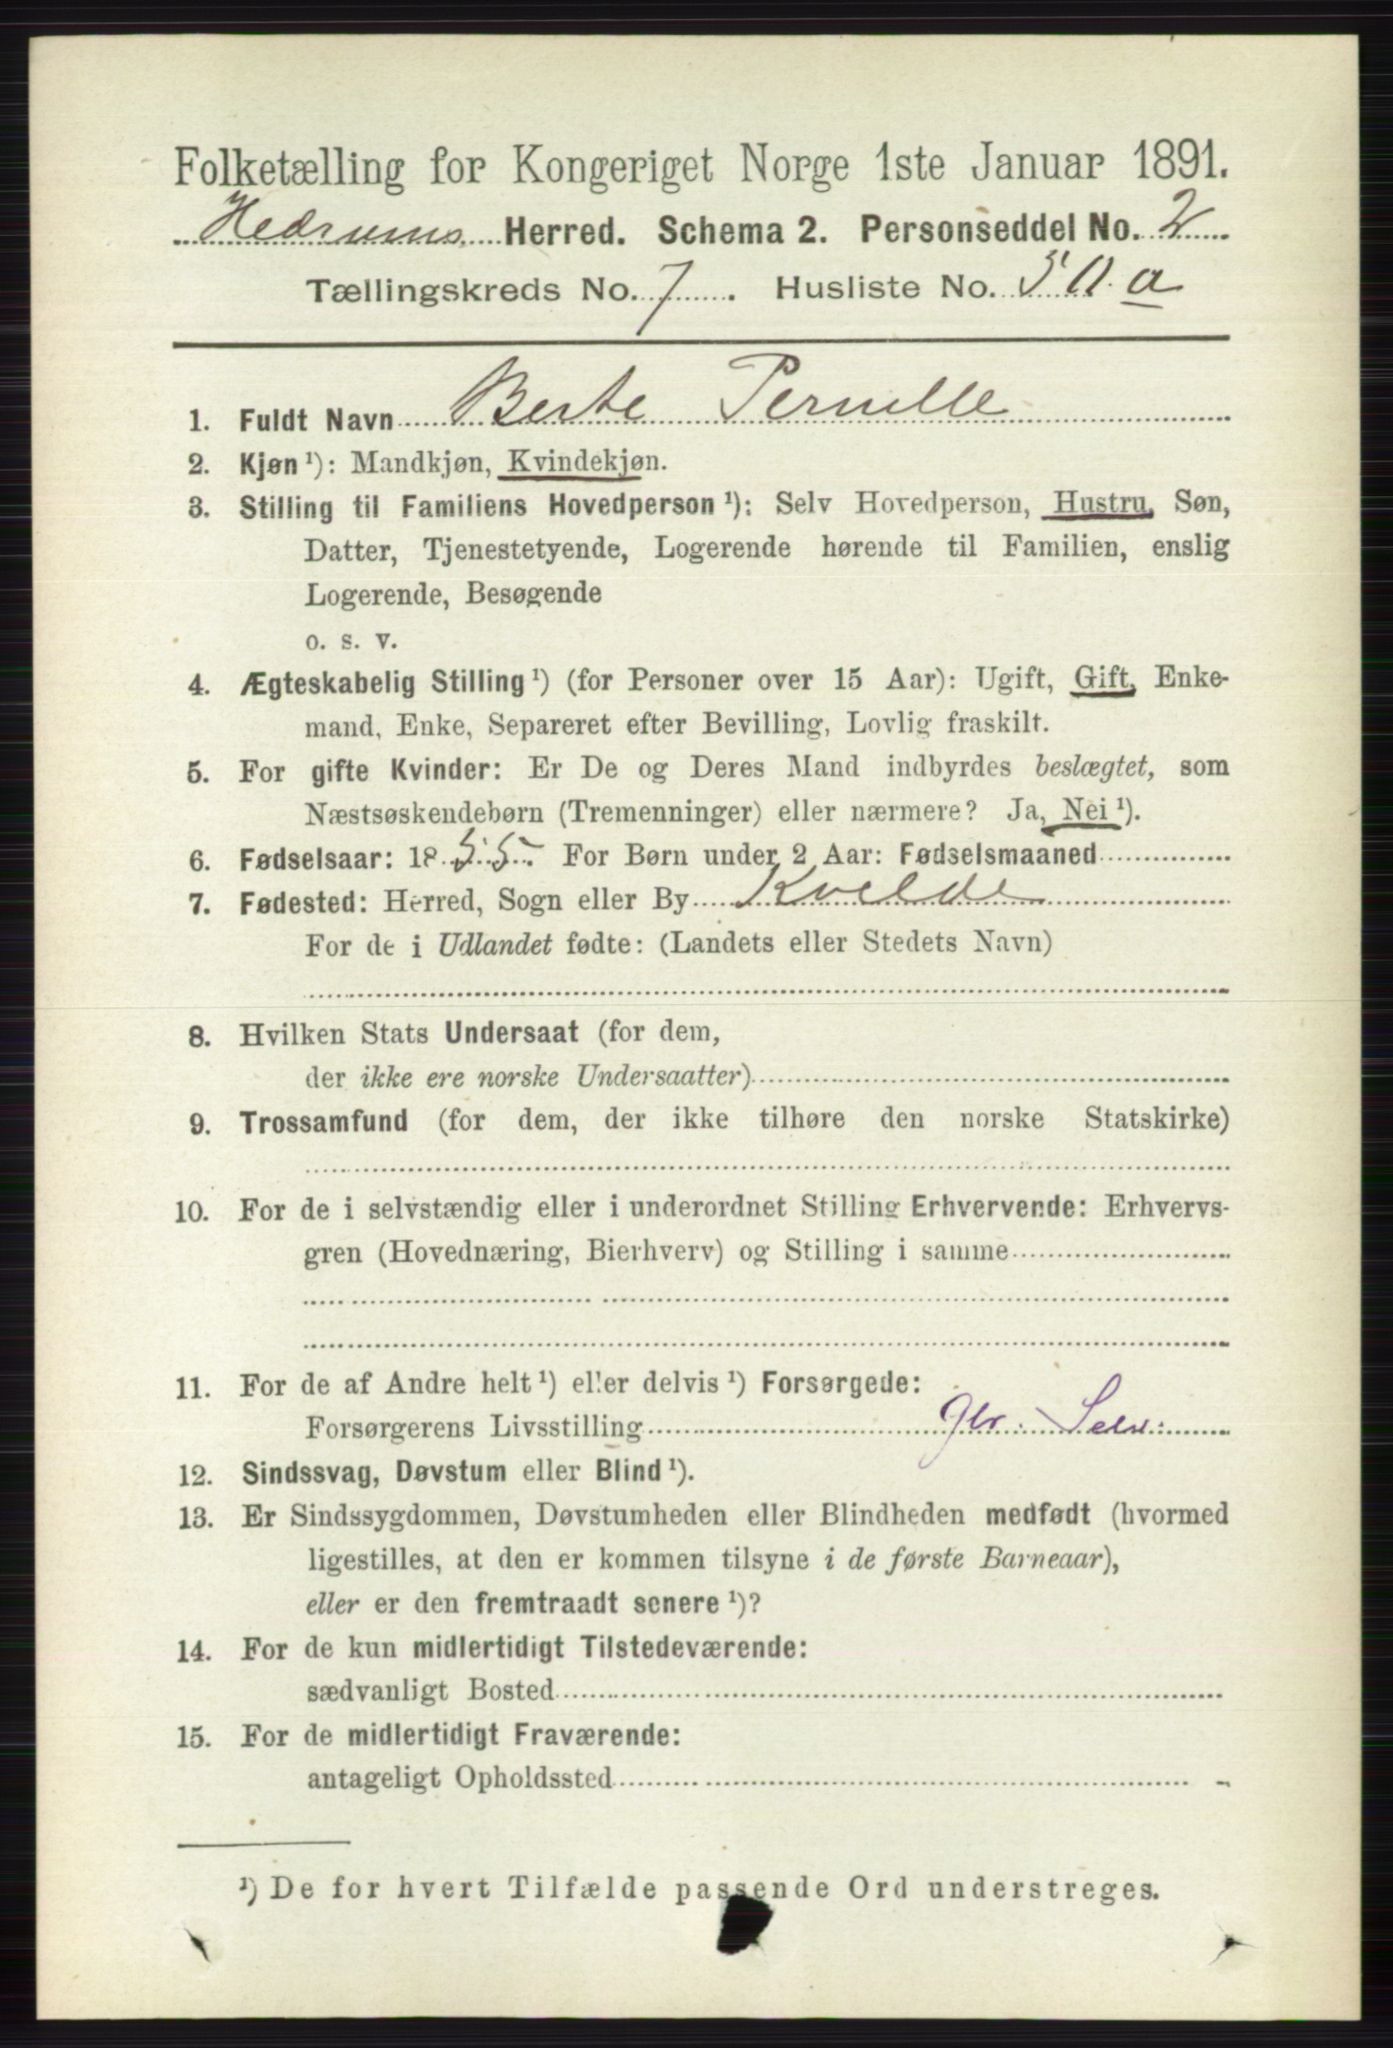 Folketælling for Kongeriget Norge 1ste Januar 1891.
Hedrums Herred. Schema 2. Personseddel No. 2
Tællingskreds No. 7. Husliste No. 50.a
1. Fuldt Navn Berte Pernille
2. Kjøn ¹): Mandkjøn, Kvindekjøn.
3. Stilling til Familiens Hovedperson ¹): Selv Hovedperson, Hustru, Søn,
Datter, Tjenestetyende, Logerende hørende til Familien, enslig
Logerende, Besøgende
o. s. v.
4. Ægteskabelig Stilling ¹) (for Personer over 15 Aar): Ugift, Gift, Enke-
mand, Enke, Separeret efter Bevilling, Lovlig fraskilt.
5. For gifte Kvinder: Er De og Deres Mand indbyrdes beslægtet, som
Næstsøskendebørn (Tremenninger) eller nærmere? Ja, Nei ¹).
6. Fødselsaar: 1855. For Børn under 2 Aar: Fødselsmaaned
7. Fødested: Herred, Sogn eller By Kvelde
For de i Udlandet fødte: (Landets eller Stedets Navn)
8. Hvilken Stats Undersaat (for dem,
der ikke ere norske Undersaatter)
9. Trossamfund (for dem, der ikke tilhøre den norske Statskirke)
10. For de i selvstændig eller i underordnet Stilling Erhvervende: Erhvervs-
gren (Hovednæring, Bierhverv) og Stilling i samme
11. For de af Andre helt ¹) eller delvis ¹) Forsørgede:
Forsørgerens Livsstilling
12. Sindssvag, Døvstum eller Blind ¹).
13. Er Sindssygdommen, Døvstumheden eller Blindheden medfødt (hvormed
ligestilles, at den er kommen tilsyne i de første Barneaar),
eller er den fremtraadt senere ¹)?
14. For de kun midlertidigt Tilstedeværende:
sædvanligt Bosted
15. For de midlertidigt Fraværende:
antageligt Opholdssted
¹) De for hvert Tilfælde passende Ord understreges.